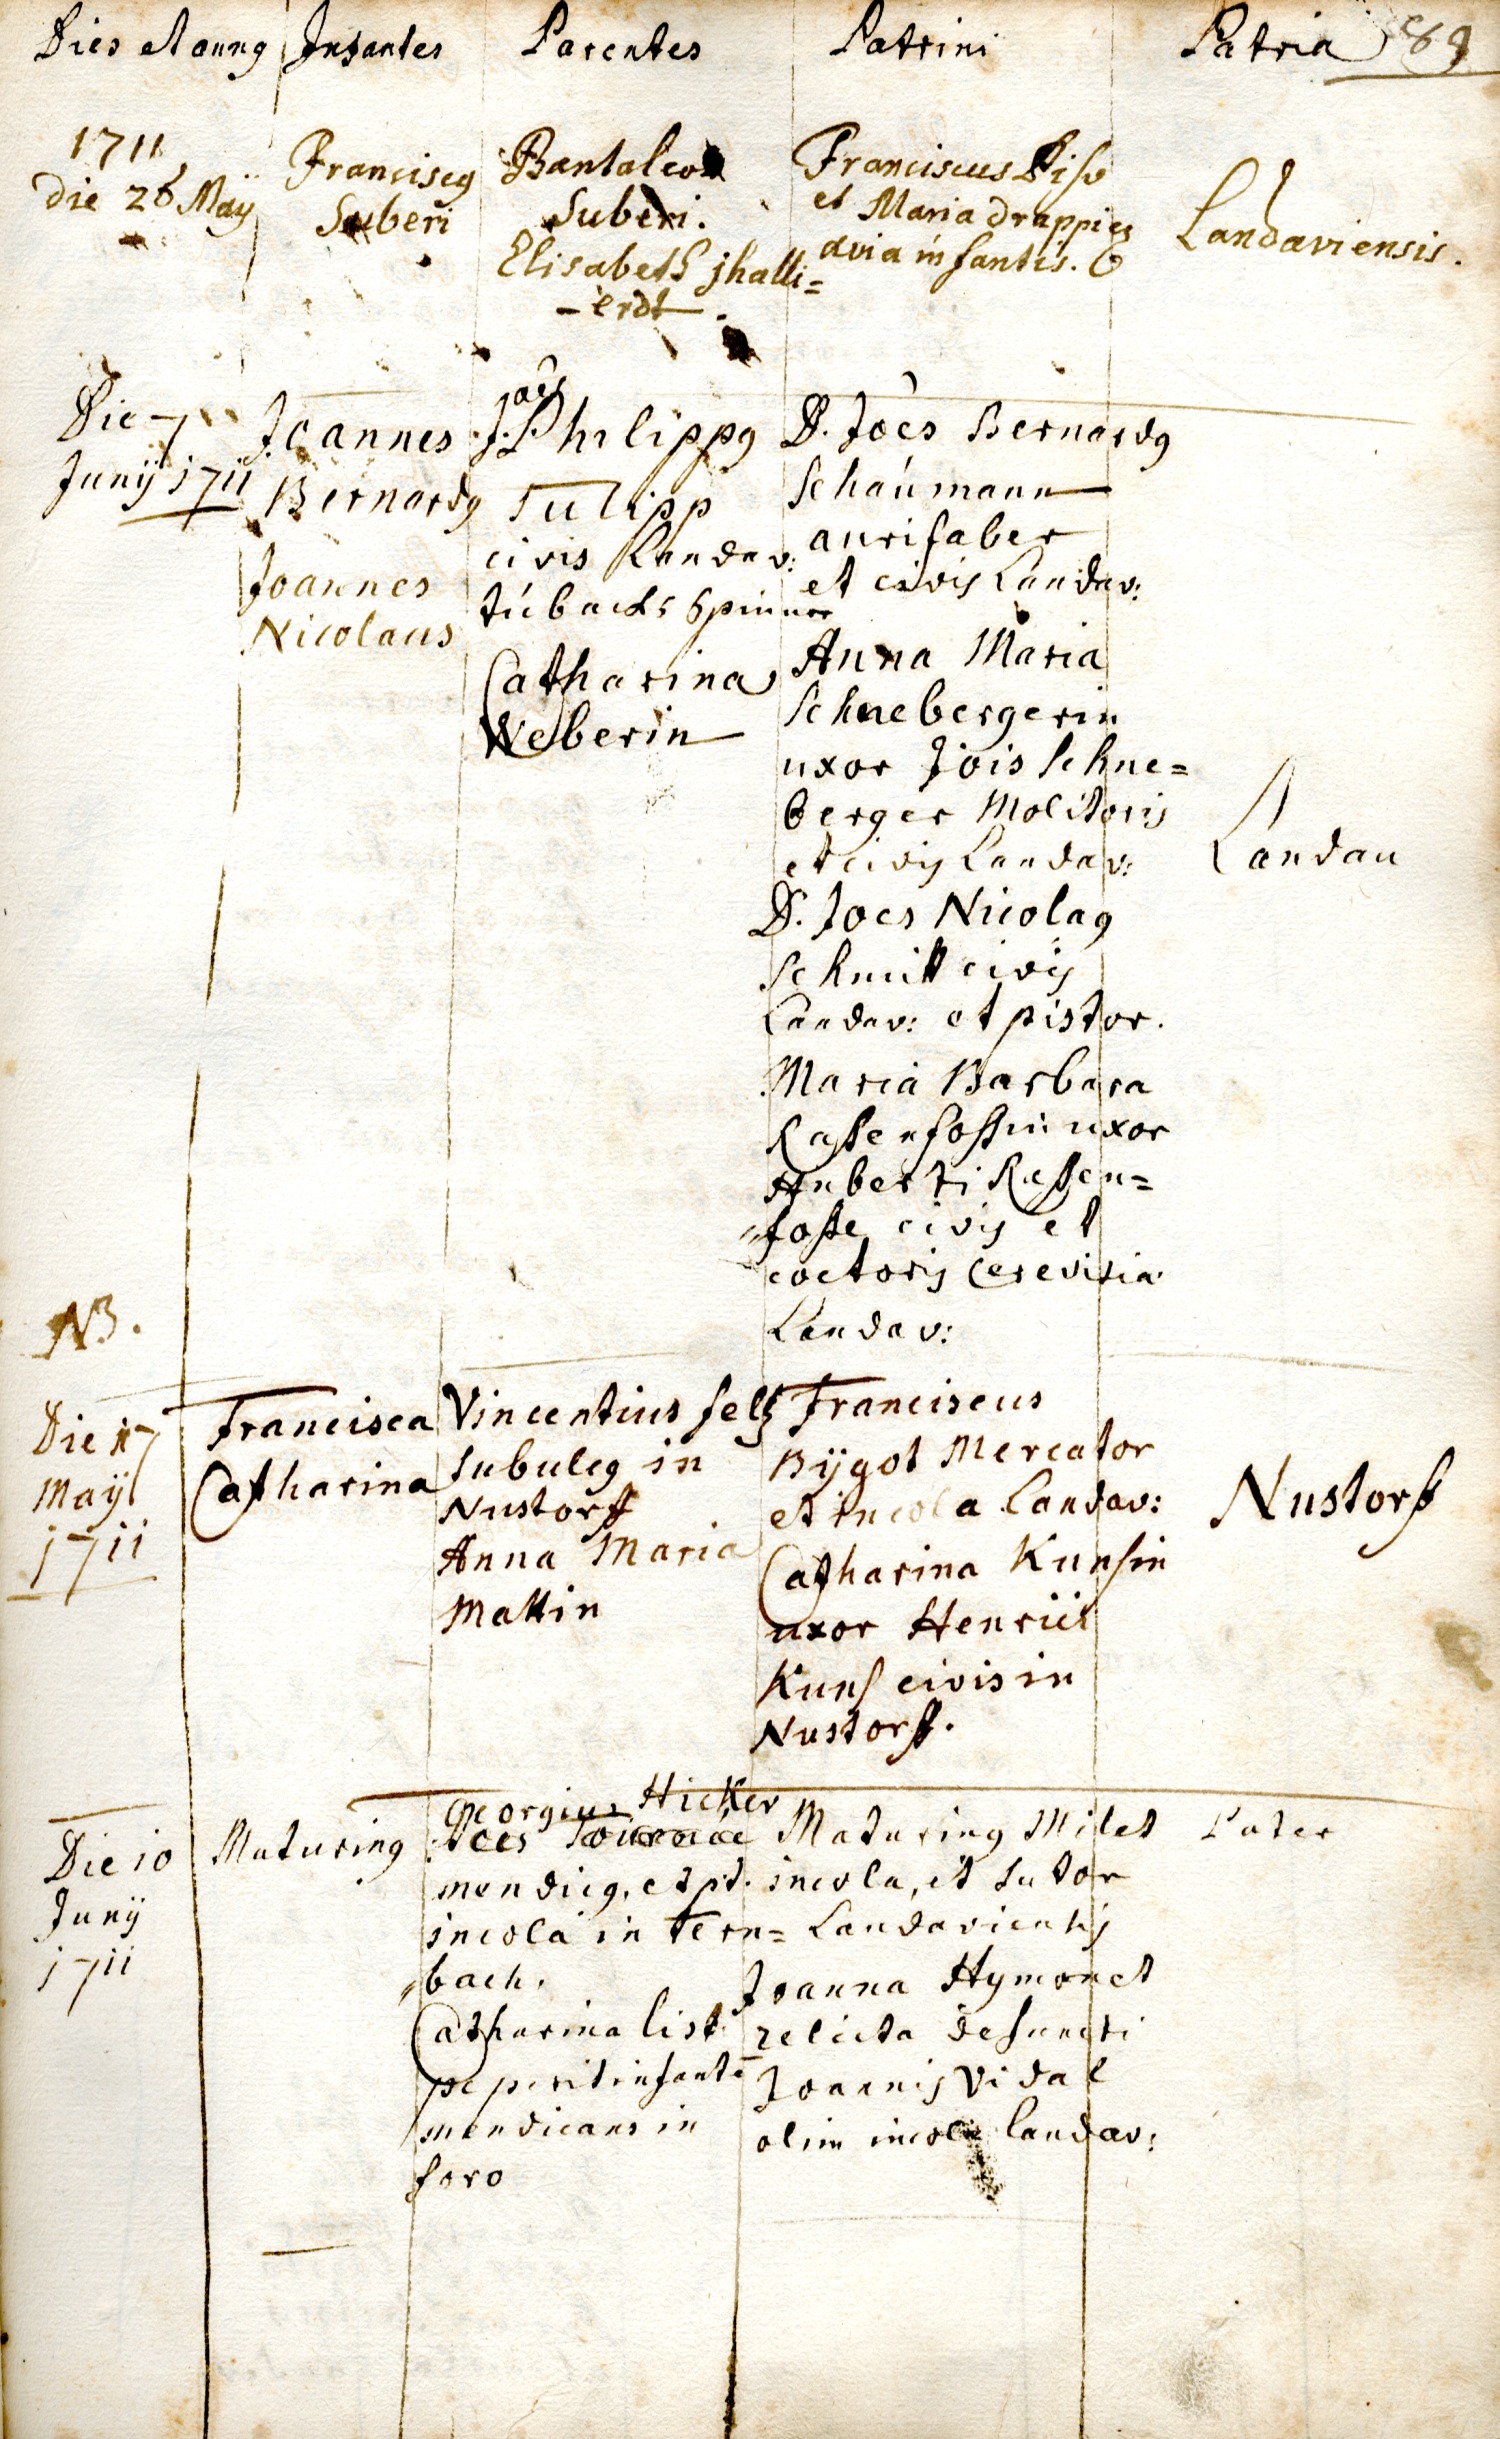 Dies et annus Infantes Parentes Patrini Patria 89
1711
die 26 Maÿ
Franciscus
Suberi
Pantaleon
Suberi.
Elisabeth jhalli=
-erdt.
Franciscus Piso
et Maria drappiez
avia infantis.
Landaviensis.
Die 7
Junÿ 1711
Joannes
Bernardus
Joannes
Nicolaus
joes
J. Philippus
Tulipp
civis Landav:
Tubacks Spinner
Catharina
Weberin
D. Joes Bernardus
Schaúmann
aurifaber
et civis Landav:
Anna Maria
Schnebergerin
uxor Jois Schne=
berger Molitoris
et civis Landav:
D. Joes Nicolaus
Schmitt civis
Landav: et pistor.
Maria Barbara
Rassenfossin uxor
Huberti Rassen=
fosse civis et
coctoris Cerevisia
Landav:
Landau
NB.
Die 17
Maÿ
1711
Francisca
Catharina
Vincentius feltz
subulcus in
Nustorff
Anna Maria
Mattin
Franciscus
Bÿgot Mercator
et incola Landav:
Catharina Kunsin
uxor Henrici
Kuns civis in
Nustorff.
Nustorff
Die 10
Junÿ
1711
Maturinus
Georgius Hicker
Joes
mendicus, et pt.
incola in Tern=
bach.
Catharina List
peperit infantē
mendicans in
foro
Maturinus Milet
incola, et sutor
Landaviensis
Joanna Hymonet
relicta defuncti
Joannis Vidal
olim incola Landav:
Pater